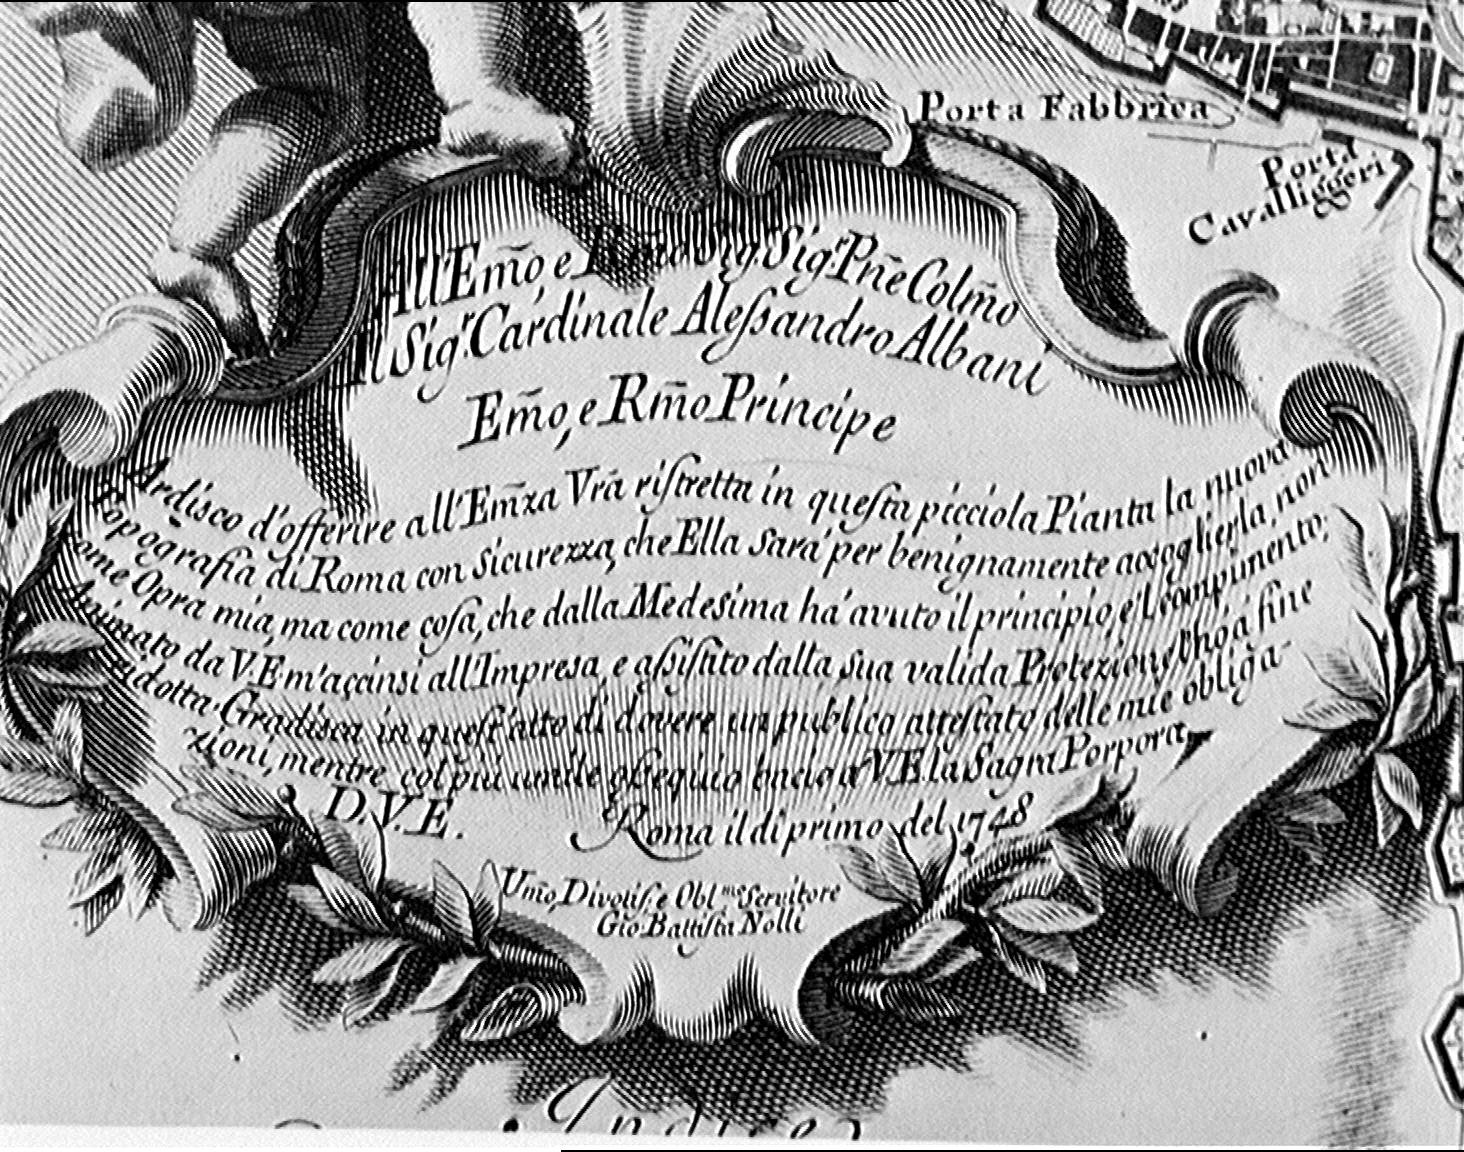 Porta Fabbrica
Porta
Cavalliggeri
All'Em̃o, e Rm̃o Sig. Sig.r Pñe Colm̃o
Il Sig.r Cardinale Aleſsandro Albani
Em̃o, e Rm̃o Principe
Ardisco d'offerire all'Em̃za Vrã riſtretta in queſta picciola Pianta la nuova
Topografia di Roma con sicurezza, che Ella sarà per benignamente accoglierla, non
come Opra mia, ma come coſa, che dalla Medesima ha' avuto il principio, e'l compimento;
Animato da V. E m'accinsi all'Impresa, e aſsiſtito dalla sua valida Protezione l'hò à fine
ridotta. Gradisca in queſt'atto di dovere un publico atteſtato delle mie obliga-
zioni, mentre col più umile oſsequio bacio a V. E. la Sagra Porpora.
D. V. E.
Roma il dì primo del 1748
Um̃o, Divotiſ. e Obl.mo Servitore
Gio: Battiſta Nolli
Indice